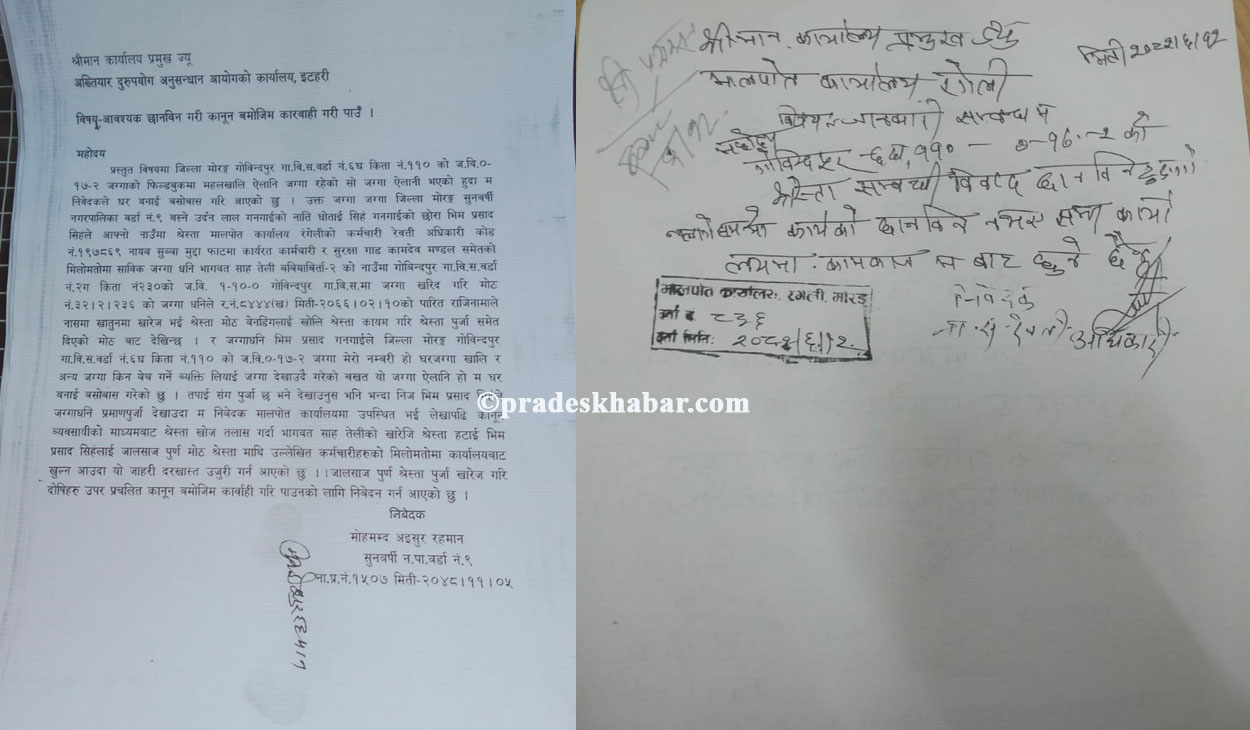 श्रीमान कार्यालय प्रमुख ज्यू
अख्तियार दुरुपयोग अनुसन्धान आयोगको कार्यालय, इटहरी
विषय-आवश्यक छानविन गरी कानून बमोजिम कारवाही गरी पाउँ ।
महोदय
प्रस्तुत विषयमा जिल्ला मोरङ्ग गोविन्दपुर गा.वि.स.वर्डा नं.६घ किता नं.११० को ज.वि.०-
१७-२ जग्गाको फिल्डबुकमा महलखालि ऐलानि जग्गा रहेको सो जग्गा ऐलानी भएको हुदा म
निवेदकले घर बनाई बसोबास गरि आएको छु । उक्त जग्गा जग्गा जिल्ला मोरङ्ग सुनवर्षी
नगरपालिका वर्डा नं.९ बस्ने उर्दन लाल गनगाईको नाति घोताई सिहं गनगाईको छोरा भिम प्रसाद
सिहंले आफ्नो नाउँमा श्रेस्ता मालपोत कार्यालय रंगेलीको कर्मचारी रेवती अधिकारी कोड
नं.१९७८६९ नायव सुब्बा मुद्दा फाटमा कार्यरत कार्मचारी र सुरक्षा गाड कामदेव मण्डल समेतको
मिलोमतोमा साविक जग्गा धनि भागवत साह तेली बवियाविर्ता-२ को नाउँमा गोविन्दपुर गा.वि.स.वर्डा
नं.२ग किता नं२३०को ज.वि. १-१०-० गोविन्दपुर गा.वि.स.मा जग्गा खरिद गरि मोठ
नं.३२।२।२३६ को जग्गा धनिले र.नं.८४४४(ख) मिती-२०६६।०२।१०को पारित राजिनामाले
नासमा खातुनमा खारेज भई श्रेस्ता मोठ बेनडिगंलाई खोलि श्रेस्ता कायम गरि श्रेस्ता पुर्जा समेत
दिएको मोठ बाट देखिन्छ । र जग्गाधनि भिम प्रसाद गनगाईले जिल्ला मोरङ्ग गोविन्दपुर
गा.वि.स.वर्डा नं.६घ किता नं.११० को ज.वि.०-१७-२ जग्गा मेरो नम्बरी हो घरजग्गा खालि र
अन्य जग्गा किन बेच गर्ने व्यक्ति लियाई जग्गा देखाउदै गरेको बखत यो जग्गा ऐलानि हो म घर
बनाई बसोबास गरेको छु । तपाई संग पुर्जा छ भने देखाउनुस भनि भन्दा निज भिम प्रसाद सिहंले
जग्गाधनि प्रमाणपुर्जा देखाउदा म निवेदक मालपोत कार्यालयमा उपस्थित भई लेखापढि कानून
व्यबसायीको माध्यमबाट श्रेस्ता खोज तलास गर्दा भागवत साह तेलीको खारेजि श्रेस्ता हटाई भिम
प्रसाद सिहंलाई जालसाज पुर्ण मोठ श्रेस्ता माथि उल्लेखित कर्मचारीहरुको मिलोमतोमा कार्यालयबाट
खुल्न आउदा यो जाहरी दरखास्त उजुरी गर्न आएको छु । ।जालसाज पुर्ण श्रेस्ता पुर्जा खारेज गरि
दोषिहरु उपर प्रचलित कानून बमोजिम कार्वाही गरि पाउनको लागि निवेदन गर्न आएको छु ।
निवेदक
मोहमम्द अइसुर रहमान
सुनवर्षी न.पा.वर्डा नं.९
ना.प्र.नं.१५०७ मिती-२०४८।११।०५
©pradeskhabar.com
श्रीमान कार्यालय प्रमुख ज्यु
मालपोत कार्यालय रंगेली
विषय:- जानकारी सम्बन्धमा
महोदय
गोविन्दपुर - ६घ, ११० - ०-१७-२ को
श्रेस्ता सम्बन्धी विवाद छानविन
कार्यको छानविन
निवेदक
अधिकारी
मालपोत कार्यालय, रंगेली, मोरङ
८३६